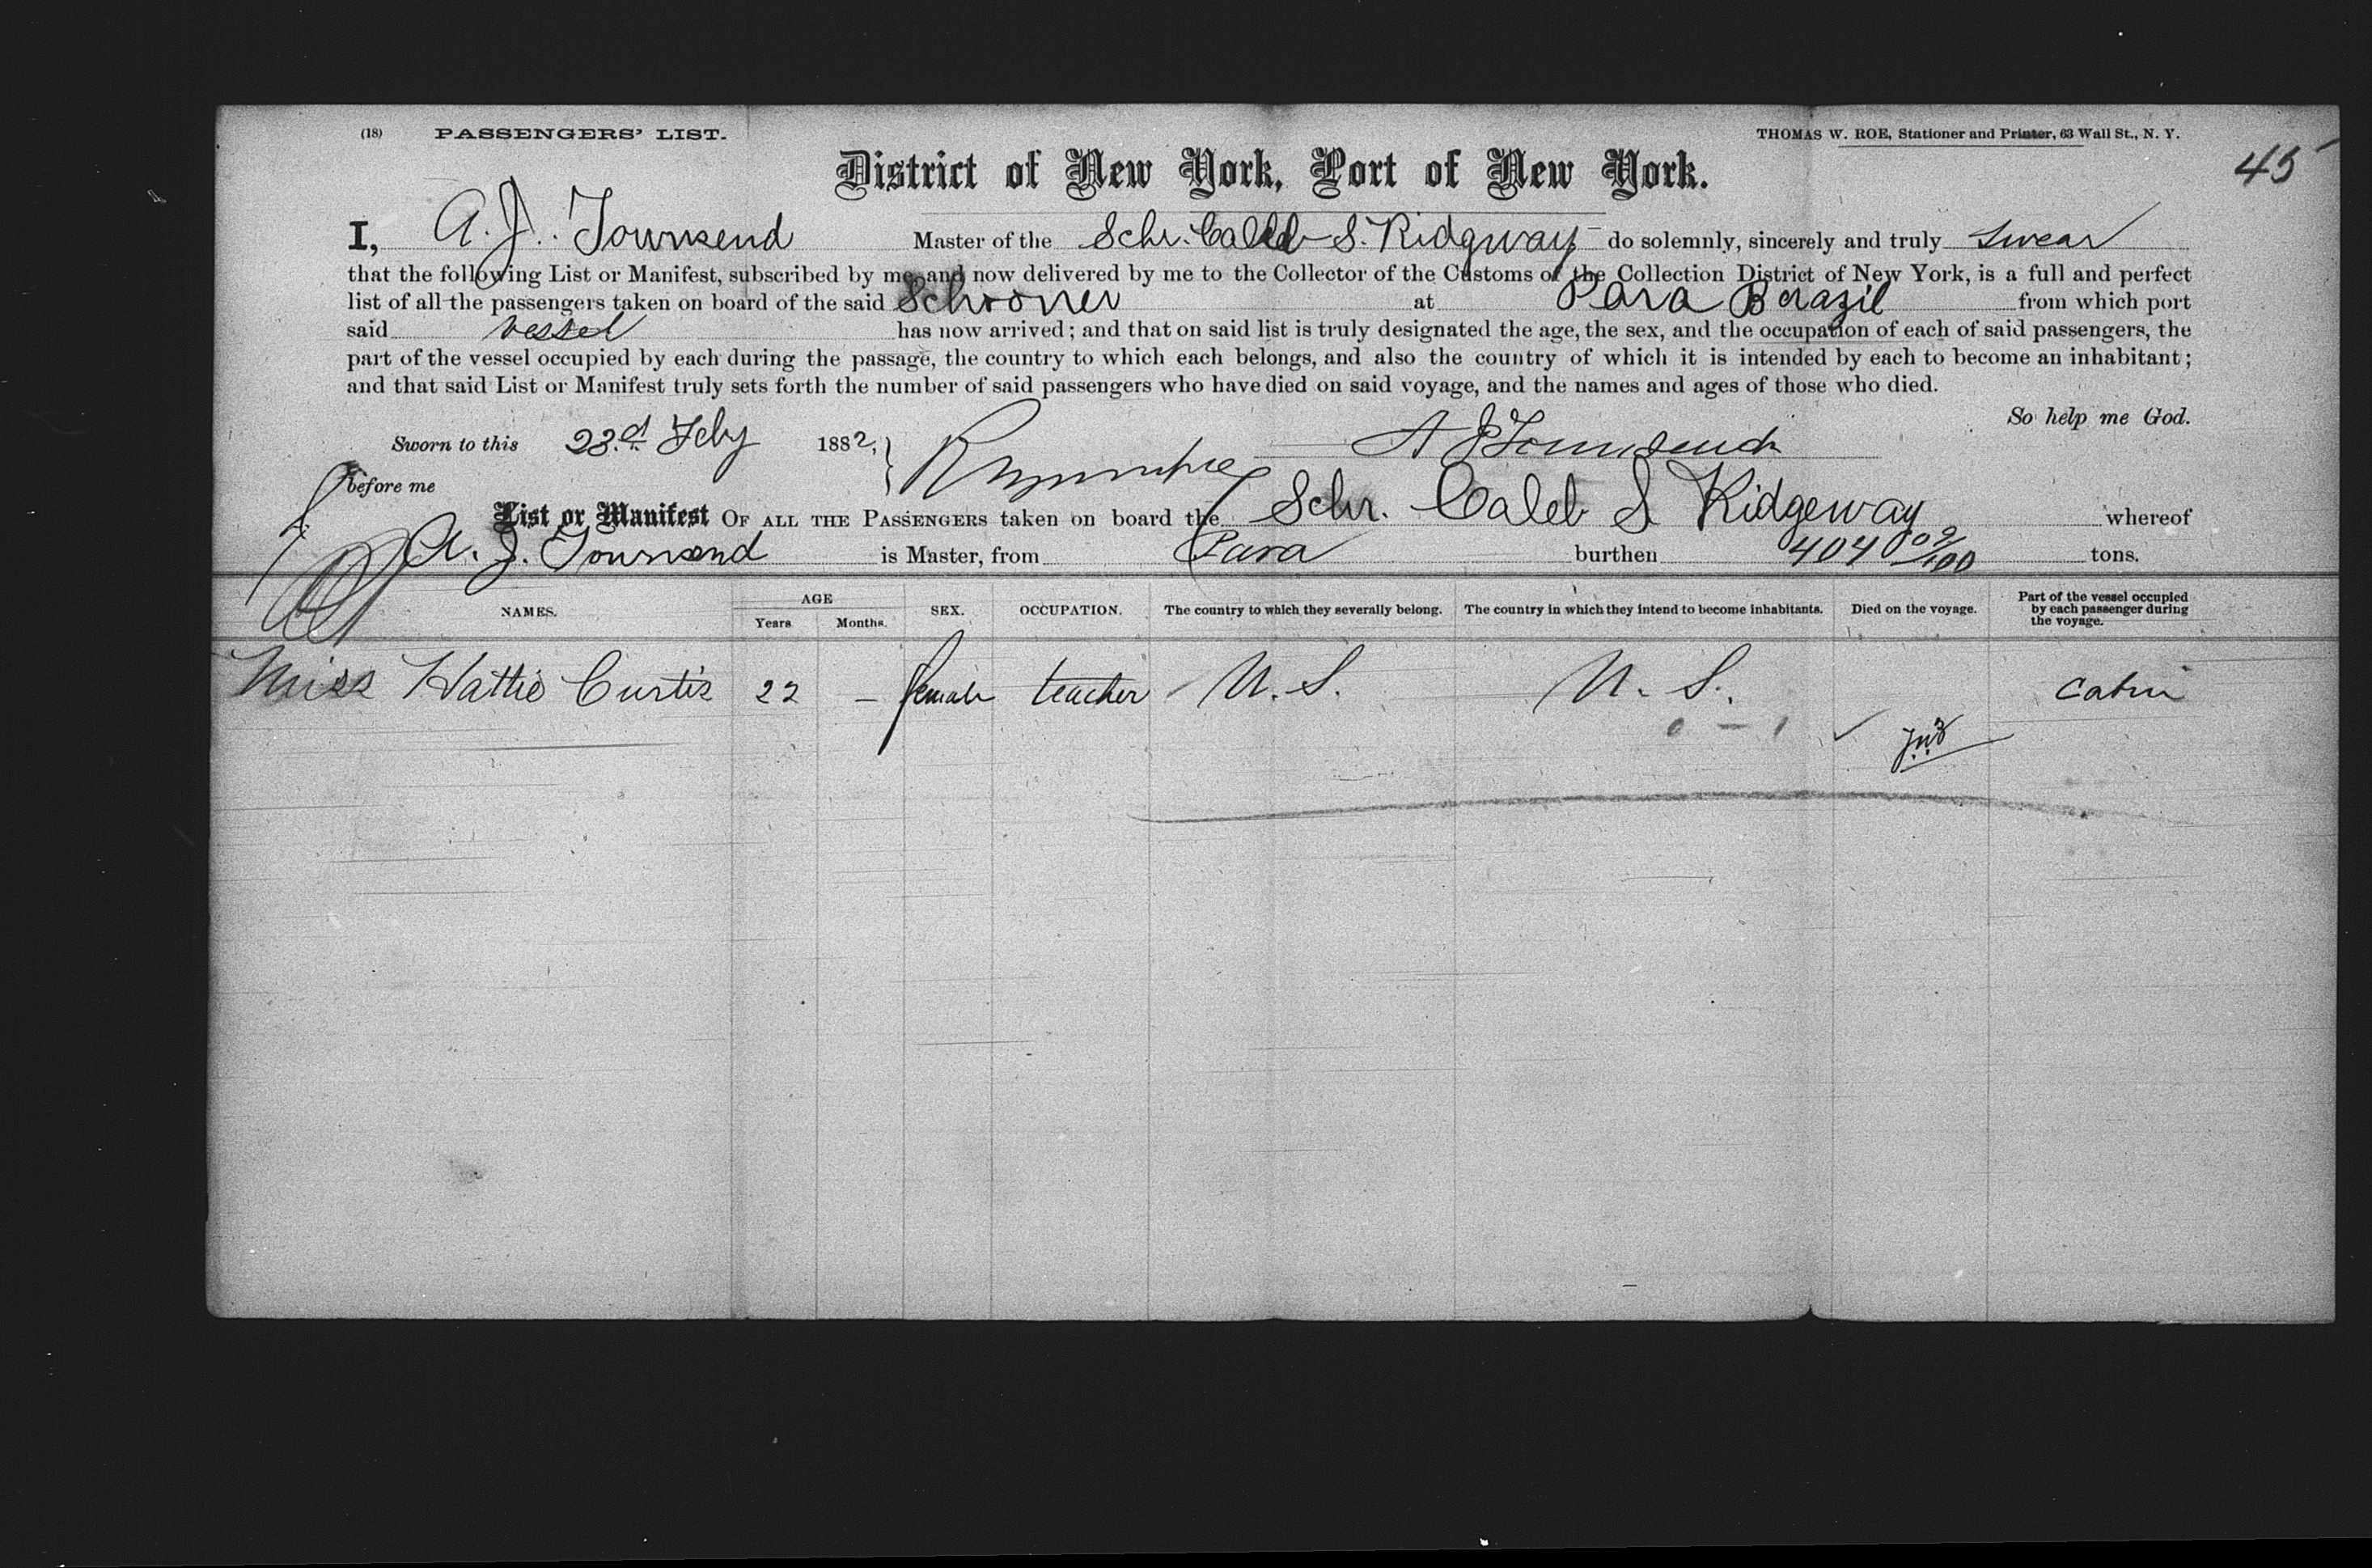 (18) PASSENGERS' LIST.
THOMAS W. ROE, Stationer and Printer, 63 Wall St., N. Y.
45
District of New York, Port of New York.
I, A. J. Townsend Master of the Schr. Caleb S. Ridgway do solemnly, sincerely and truly swear
that the following List or Manifest, subscribed by me and now delivered by me to the Collector of the Customs of the Collection District of New York, is a full and perfect
list of all the passengers taken on board of the said Schooner at Para Brazil from which port
said vessel has now arrived; and that on said list is truly designated the age, the sex, and the occupation of each of said passengers, the
part of the vessel occupied by each during the passage, the country to which each belongs, and also the country of which it is intended by each to become an inhabitant;
and that said List or Manifest truly sets forth the number of said passengers who have died on said voyage, and the names and ages of those who died.
So help me God.
Sworn to this 23.d Feby 1882, A J Townsend
before me
List or Manifest OF ALL THE PASSENGERS taken on board the Schr. Caleb S Ridgeway whereof
A. J. Townsend is Master, from Para burthen 404 09/100 tons.
NAMES. AGE Years Months. SEX. OCCUPATION. The country to which they severally belong. The country in which they intend to become inhabitants. Died on the voyage. Part of the vessel occupied by each passenger during the voyage.
Miss Hattie Curtis 22 – female teacher U. S. U. S. Cabin
0 – 1